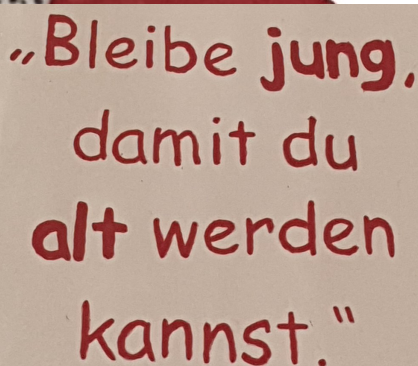 „Bleibe jung,
damit du
alt werden
kannst."